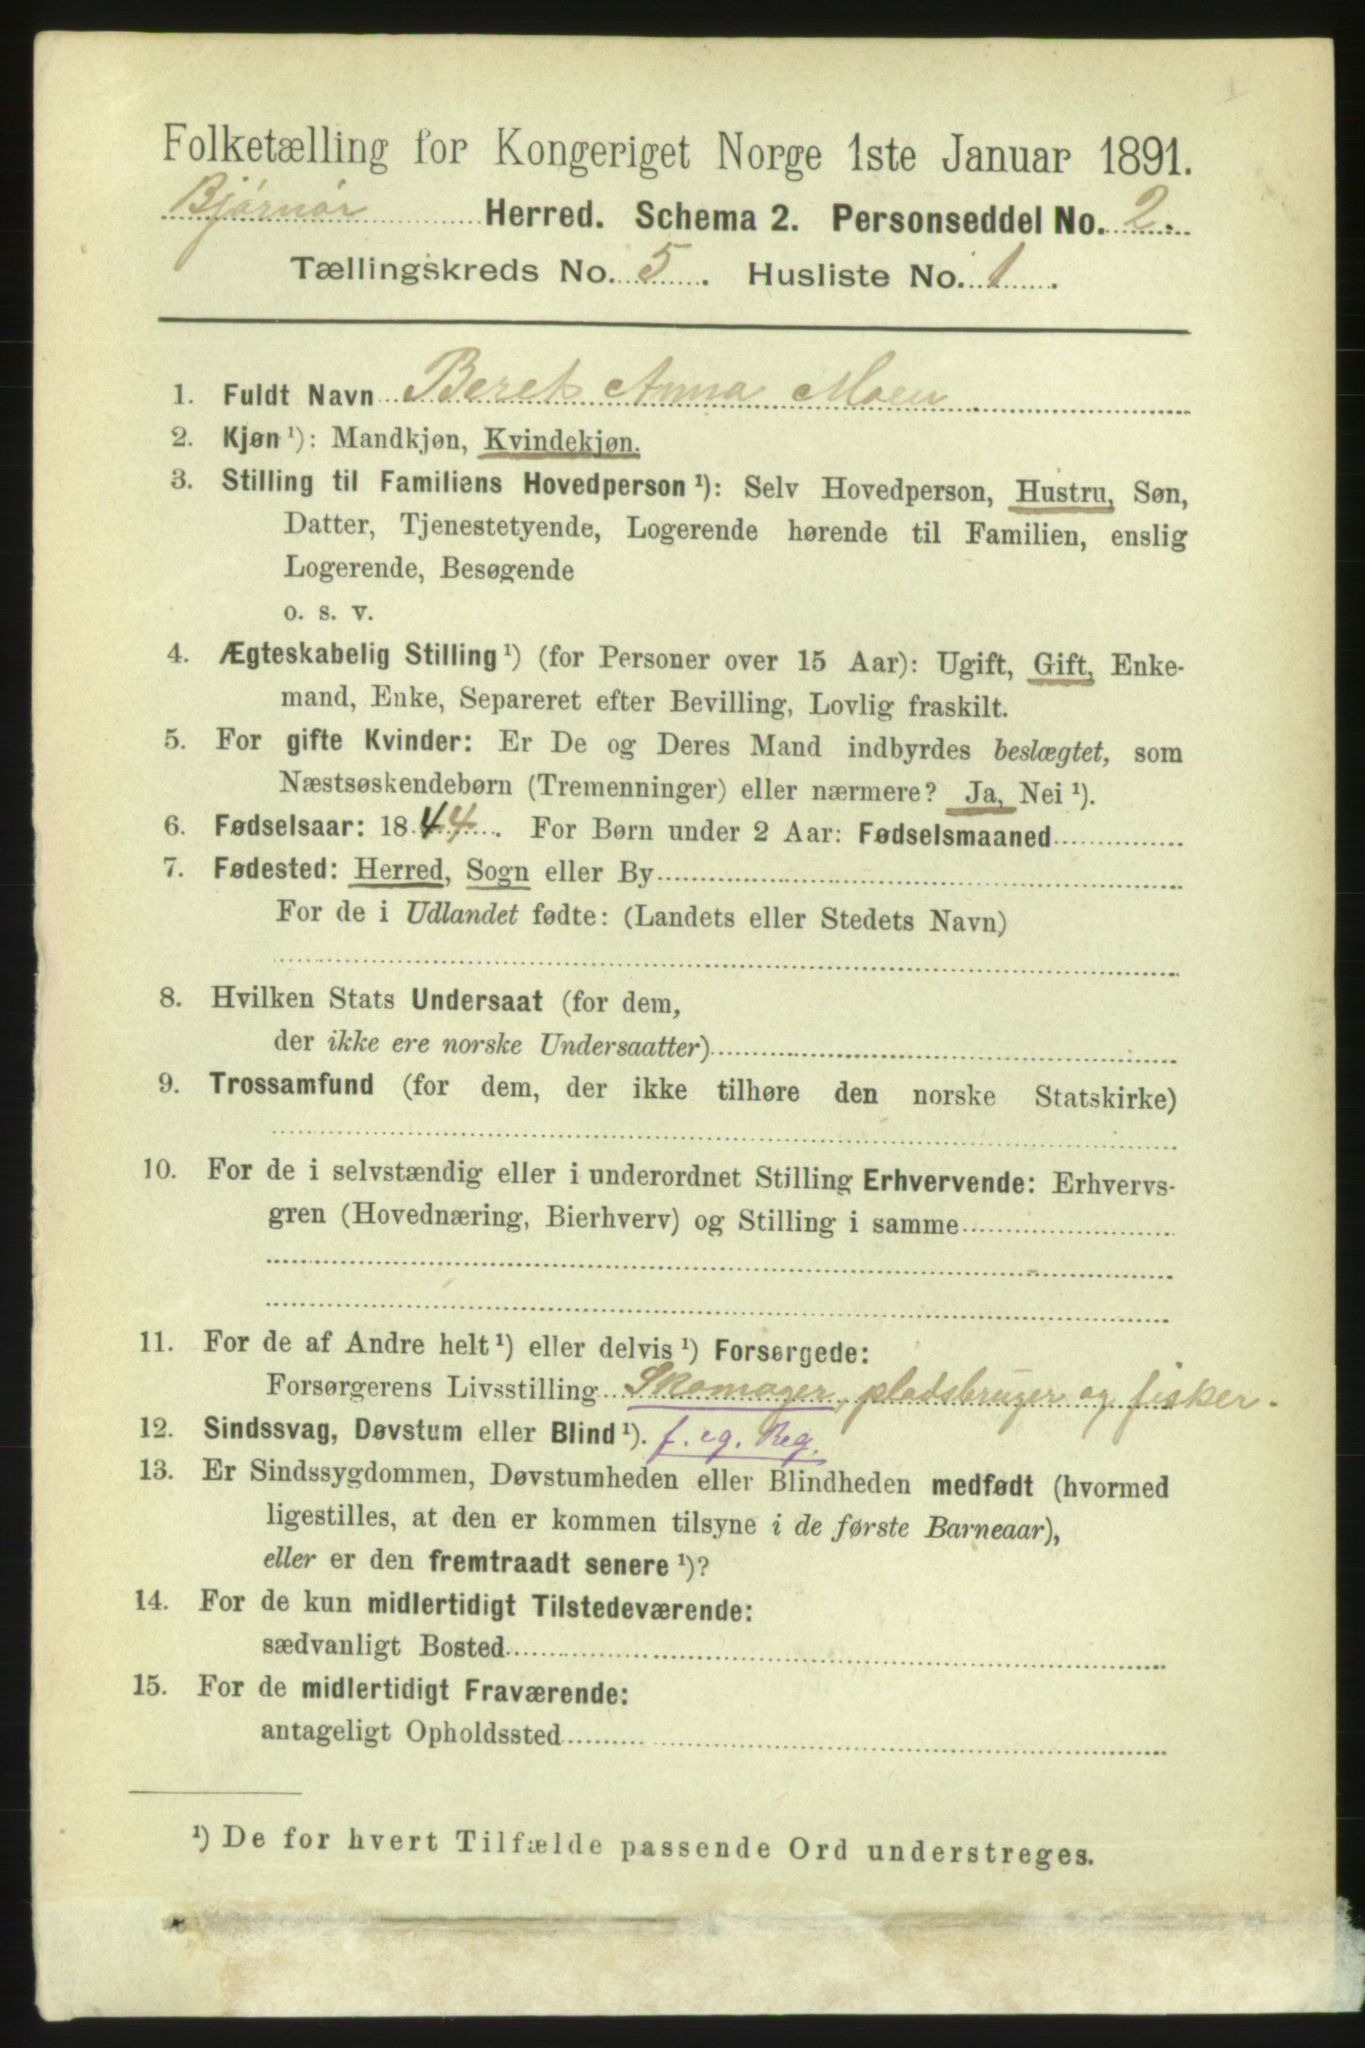 Folketælling for Kongeriget Norge 1ste Januar 1891.
Bjørnør Herred. Schema 2. Personseddel No. 2.
Tællingskreds No. 5. Husliste No. 1.
1. Fuldt Navn Beret Anna Moen
2. Kjøn ¹): Mandkjøn, Kvindekjøn.
3. Stilling til Familiens Hovedperson ¹): Selv Hovedperson, Hustru, Søn,
Datter, Tjenestetyende, Logerende hørende til Familien, enslig
Logerende, Besøgende
o. s. v.
4. Ægteskabelig Stilling ¹) (for Personer over 15 Aar): Ugift, Gift, Enke-
mand, Enke, Separeret efter Bevilling, Lovlig fraskilt.
5. For gifte Kvinder: Er De og Deres Mand indbyrdes beslægtet, som
Næstsøskendebørn (Tremenninger) eller nærmere? Ja, Nei ¹).
6. Fødselsaar: 1844. For Børn under 2 Aar: Fødselsmaaned
7. Fødested: Herred, Sogn eller By
For de i Udlandet fødte: (Landets eller Stedets Navn)
8. Hvilken Stats Undersaat (for dem,
der ikke ere norske Undersaatter)
9. Trossamfund (for dem, der ikke tilhøre den norske Statskirke)
10. For de i selvstændig eller i underordnet Stilling Erhvervende: Erhvervs-
gren (Hovednæring, Bierhverv) og Stilling i samme
11. For de af Andre helt ¹) eller delvis ¹) Forsørgede:
Forsørgerens Livsstilling Skomager, pladsbruger og fisker.
12. Sindssvag, Døvstum eller Blind ¹). f. eg. Reg.
13. Er Sindssygdommen, Døvstumheden eller Blindheden medfødt (hvormed
ligestilles, at den er kommen tilsyne i de første Barneaar),
eller er den fremtraadt senere ¹)?
14. For de kun midlertidigt Tilstedeværende:
sædvanligt Bosted
15. For de midlertidigt Fraværende:
antageligt Opholdssted
¹) De for hvert Tilfælde passende Ord understreges.